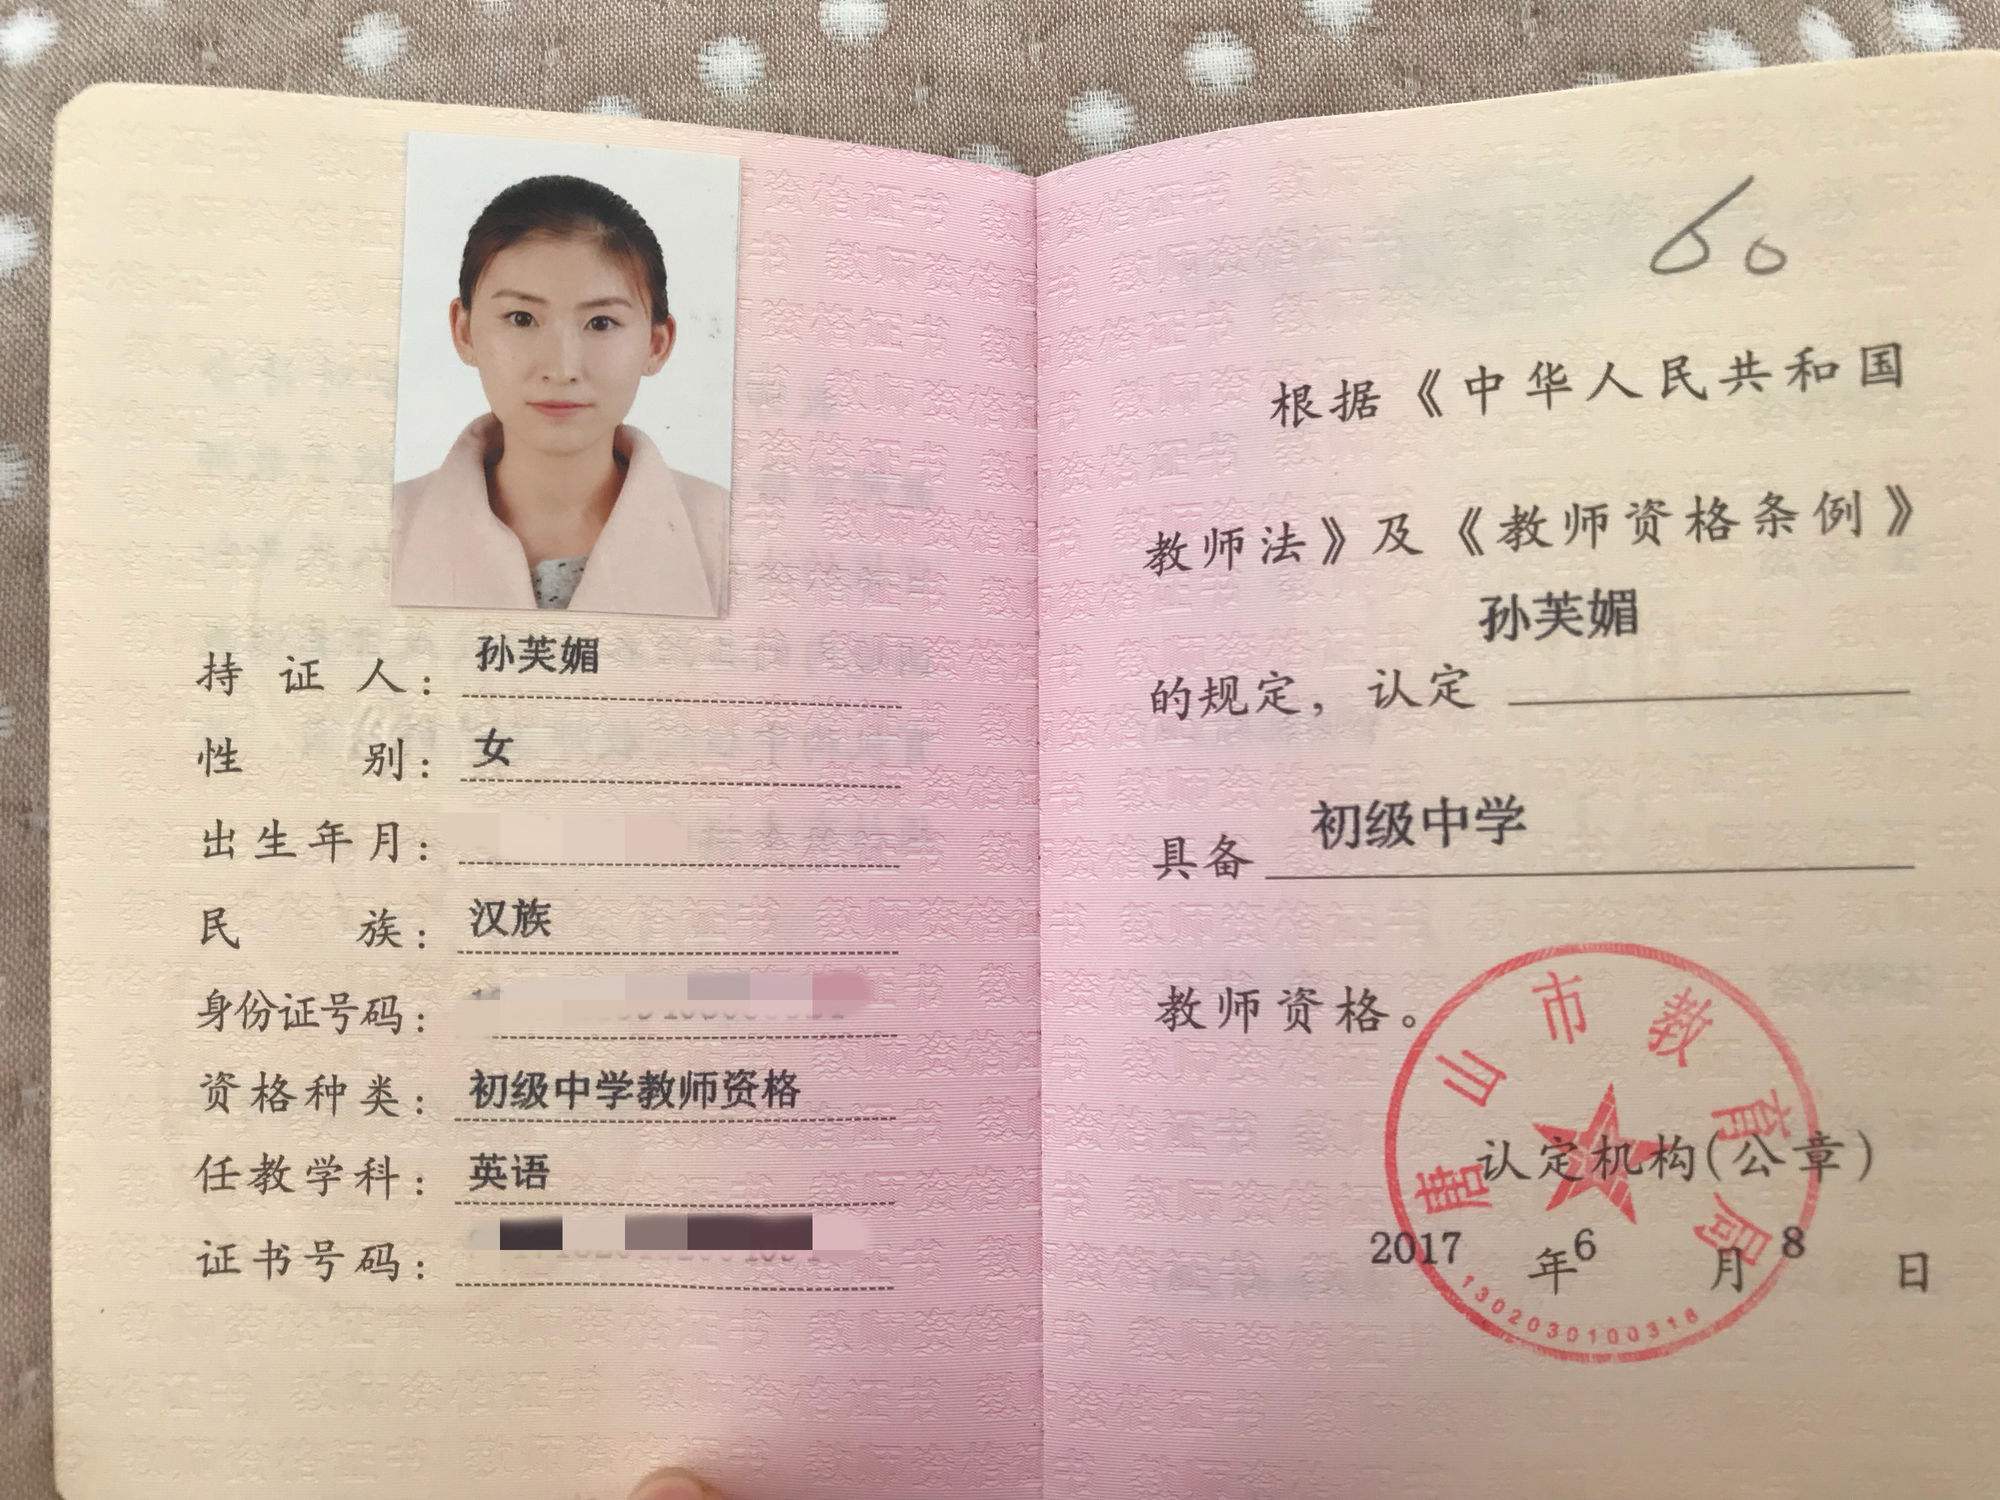 持证人：孙芙媚
性别：女
出生年月：
民族：汉族
身份证号码：
资格种类：初级中学教师资格
任教学科：英语
证书号码：
60
根据《中华人民共和国
教师法》及《教师资格条例》
的规定，认定 孙芙媚
具备 初级中学
教师资格。
唐山市教育局
认定机构(公章)
2017年6月8日
1302030100318